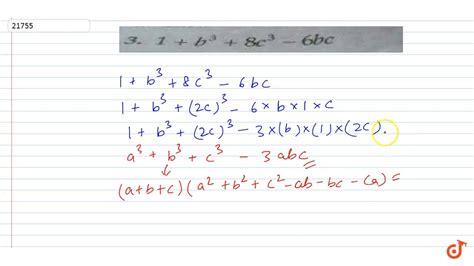 21755
3. 1 + b³ + 8c³ - 6bc
1 + b³ + 8c³ - 6bc
1 + b³ + (2c)³ - 6×b×1×c
1 + b³ + (2c)³ - 3×(b)×(1)×(2c).
a³ + b³ + c³ - 3abc
(a+b+c)(a²+b²+c²-ab-bc-ca)=
doubtnut